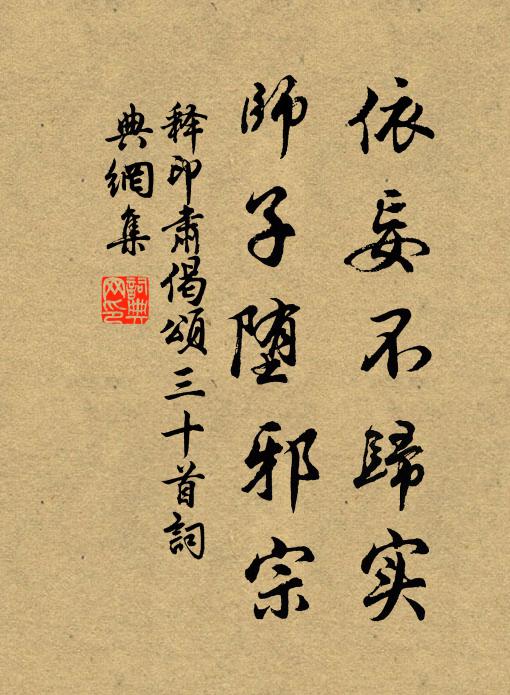 依妄不歸实
師子堕邪宗
释印肅偈頌三十首詞
典網集
詞典
网印